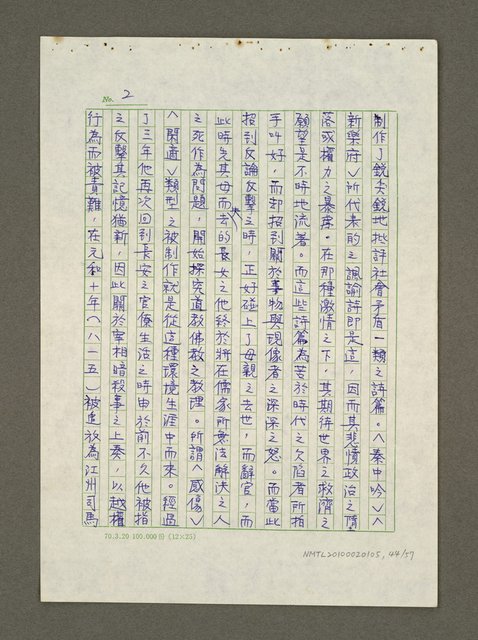 No. 2
制作了銳尖銳地批評社會矛盾一類之詩篇。︿秦中吟﹀︿
新樂府﹀所代表的之諷諭詩即是這，因而其悲憤政治之墮
落或權力之暴虐。在那種激情之下，其期待世界之救濟之
願望是不時地流著。而這些詩篇為苦於時代之欠陷者所拍
手叫好，而却招到關於事物與現像者之深深之怒。而當此
招到反論反擊之時，正好碰上了母親之去世，而辭官，而
此時先其母而去的長女之他終於將在儒家所無法解決之人
之死作為問題，開始探究道教佛教之教理。所謂︿感傷﹀
︿閑適﹀類型之被制作就是從這種環境生涯中而來。經過
了三年他再次回到長安之官僚生活之時由於前不久他被指
之反擊其記憶猶新，因此關於宰相暗殺事之上奏，以越權
行為而被責難，在元和十年（八一五）被追放為江州司馬
70.3.20 100.000份 (12×25)
NMTL20100020105, 44/57